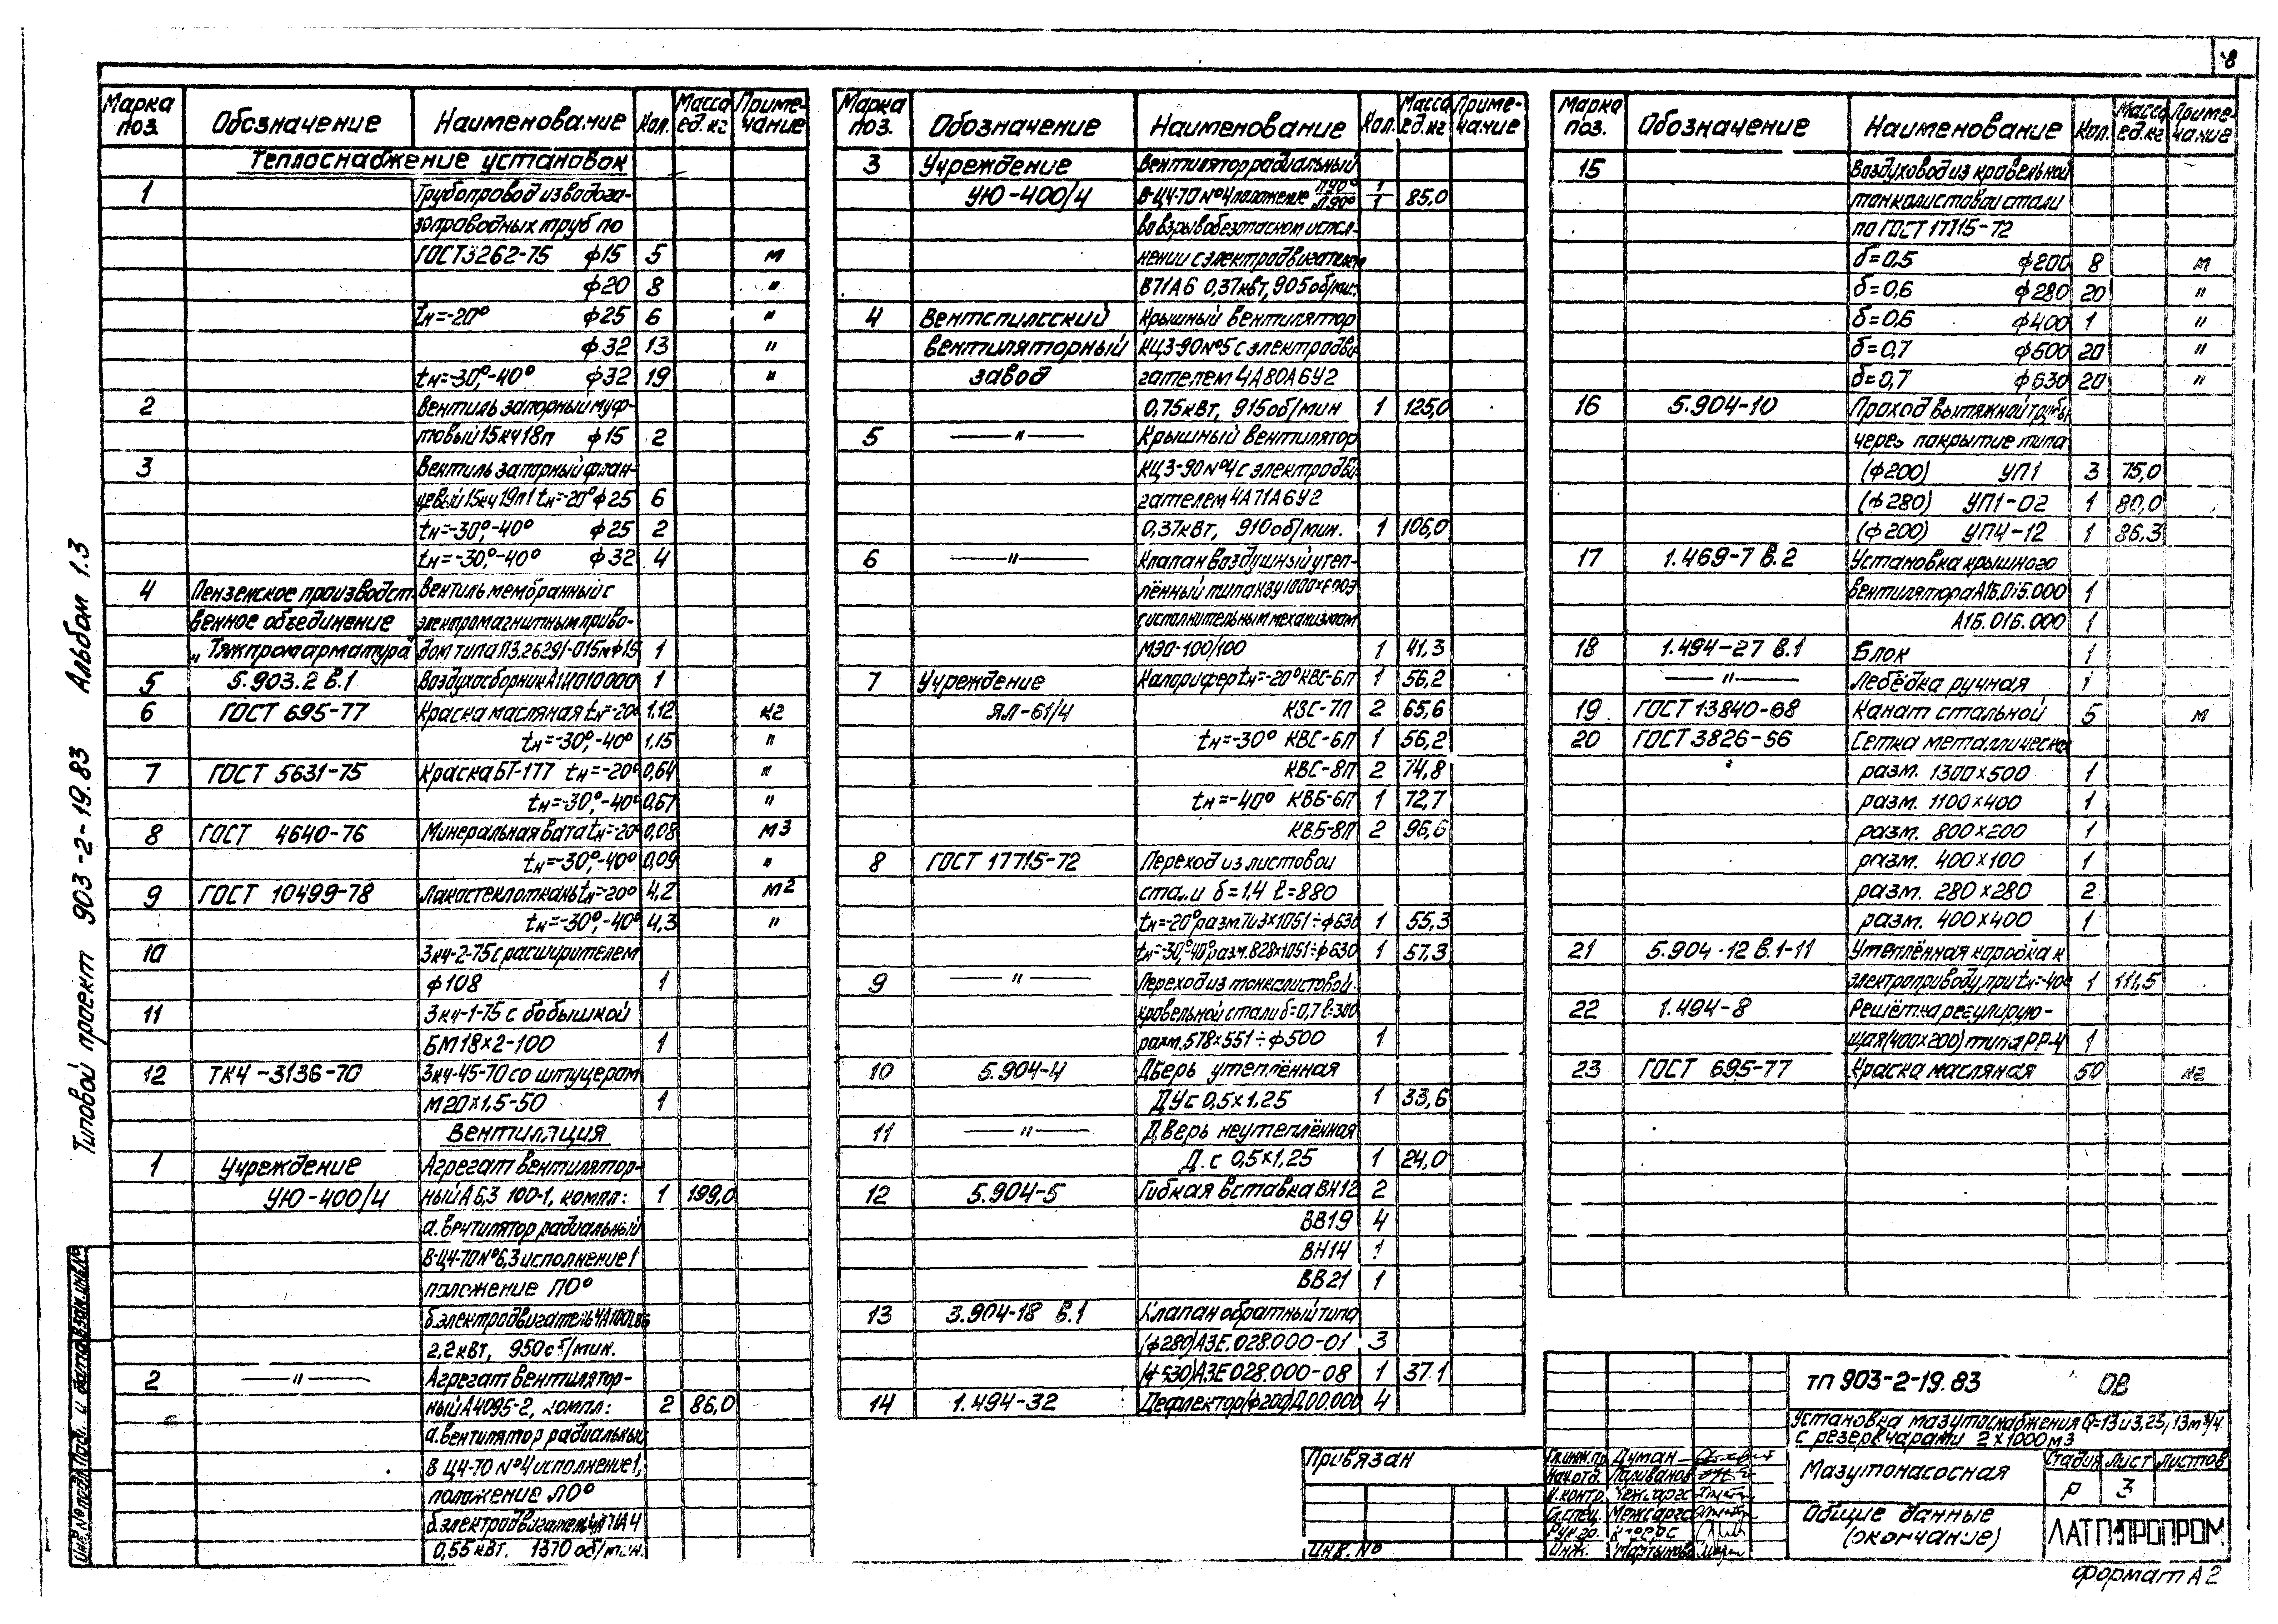 8
Марка поз. Обозначение Наименование Кол. Масса ед.кг Примечание
Теплоснабжение установок
1 Трубопровод из водога-
зопроводных труб по
ГОСТ 3262-75 ф15 5 м
ф20 8 "
tн=-20° ф25 6 "
ф32 13 "
tн=-30°,-40° ф32 19 "
2 Вентиль запорный муф-
товый 15кч18п ф15 2
3 Вентиль запорный флан-
цевый 15кч19п1 tн=-20° ф25 6
tн=-30°,-40° ф25 2
tн=-30°,-40° ф32 4
4 Пензенское производст- Вентиль мембранный с
венное объединение электромагнитным приво-
"Тяжпромарматура" дом типа ПЗ.26291-015м ф15 1
5 5.903.2 в.1 Воздухосборник А1И010000 1
6 ГОСТ 695-77 Краска масляная tн=-20° 1,12 кг
tн=-30°,-40° 1,15 "
7 ГОСТ 5631-75 Краска БТ-177 tн=-20° 0,64 "
tн=-30°,-40° 0,67 "
8 ГОСТ 4640-76 Минеральная вата tн=-20° 0,08 м3
tн=-30°,-40° 0,09 "
9 ГОСТ 10499-78 Лакостеклоткань tн=-20° 4,2 м2
tн=-30°,-40° 4,3 "
10 Зкч-2-75 с расширителем
ф108 1
11 Зкч-1-75 с бобышкой
БМ18х2-100 1
12 ТК4-3136-70 Зкч-45-70 со штуцером
М20х1,5-50 1
Вентиляция
1 Учреждение Агрегат вентилятор-
УЮ-400/4 ный А6,3 100-1, компл: 1 199,0
а.вентилятор радиальный
В-Ц4-70 №6,3 исполнение 1
положение ПО°
б.электродвигатель 4А100L6
2,2 кВт, 950 об/мин.
2 " Агрегат вентилятор-
ный А4095-2, компл: 2 86,0
а.вентилятор радиальный
В Ц4-70 №4 исполнение 1,
положение ЛО°
б.электродвигатель 4А71А4
0,55 кВт. 1370 об/мин.
Марка поз. Обозначение Наименование Кол. Масса ед.кг Примечание
3 Учреждение Вентилятор радиальный
УЮ-400/4 В-Ц4-70 №4 положение П90° Л90° 1 1 85,0
во взрывобезопасном испол-
нении с электродвигателем
В71А6 0,37 кВт, 905 об/мин.
4 Вентспилсский Крышный вентилятор
вентиляторный КЦ3-90 №5 с электродви-
завод гателем 4А80А6У2
0,75 кВт, 915 об/мин 1 125,0
5 " Крышный вентилятор
КЦ3-90 №4 с электродви-
гателем 4А71А6У2
0,37 кВт, 910 об/мин. 1 106,0
6 " Клапан воздушный утеп-
лённый типа КВУ 1000х600Э
с исполнительным механизмом
МЭО-100/100 1 41,3
7 Учреждение Калорифер tн=-20° КВС-6П 1 56,2
ЯЛ-61/4 КВС-7П 2 65,6
tн=-30° КВС-6П 1 56,2
КВС-8П 2 74,8
tн=-40° КВБ-6П 1 72,7
КВБ-8П 2 96,6
8 ГОСТ 17715-72 Переход из листовой
стали б=1,4 ℓ=880
tн=-20° разм.703х1051÷ф630 1 55,3
tн=-30°,-40° разм.828х1051÷ф630 1 57,3
9 " Переход из тонколистовой
кровельной стали б=0,7 ℓ=300
разм.578х551÷ф500 1
10 5.904-4 Дверь утеплённая
ДУс 0,5х1,25 1 33,6
11 " Дверь неутеплённая
Д.с 0,5х1,25 1 24,0
12 5.904-5 Гибкая вставка ВН12 2
ВВ19 4
ВН14 1
ВВ21 1
13 3.904-18 в.1 Клапан обратный типа
(ф280) АЗЕ.028.000-01 3
(ф530) АЗЕ 028.000-08 1 37,1
14 1.494-32 Дефлектор (ф200) Д00.000 4
Марка поз. Обозначение Наименование Кол. Масса ед.кг Примечание
15 Воздуховод из кровельной
тонколистовой стали
по ГОСТ 17715-72
б=0,5 ф200 8 м
б=0,6 ф280 20 "
б=0,6 ф400 1 "
б=0,7 ф500 20 "
б=0,7 ф630 20 "
16 5.904-10 Проход вытяжной трубы
через покрытие типа
(ф200) УП1 3 75,0
(ф280) УП1-02 1 80,0
(ф200) УП4-12 1 86,3
17 1.469-7 в.2 Установка крышного
вентилятора А1Б.015.000 1
А1Б.016.000 1
18 1.494-27 в.1 Блок 1
" Лебёдка ручная 1
19 ГОСТ 13840-68 Канат стальной 5 м
20 ГОСТ 3826-66 Сетка металлическая
разм. 1300х500 1
разм. 1100х400 1
разм. 800х200 1
разм. 400х100 1
разм. 280х280 2
разм. 400х400 1
21 5.904-12 в.1-11 Утеплённая коробка к
электроприводу при tн=-40° 1 111,5
22 1.494-8 Решётка регулирую-
щая (400х200) типа РР-4 1
23 ГОСТ 695-77 Краска масляная 50 кг
Типовой проект 903-2-19.83 Альбом 1.3
Инв.№ подл. Подп. и дата Взам.инв.№
Привязан
Инв.№
Гл.инж.пр. Думан
Нач.отд.
Н.контр.
Гл.спец. Межсаргс
Рук.гр.
Инж. Мартынова
ТП 903-2-19.83 ОВ
Установка мазутоснабжения Q=13 и 3,25/13 м³/ч
с резервуарами 2х1000 м3
Мазутонасосная
Стадия Лист Листов
Р 3
Общие данные
(окончание)
ЛАТГИПРОПРОМ
Формат А2